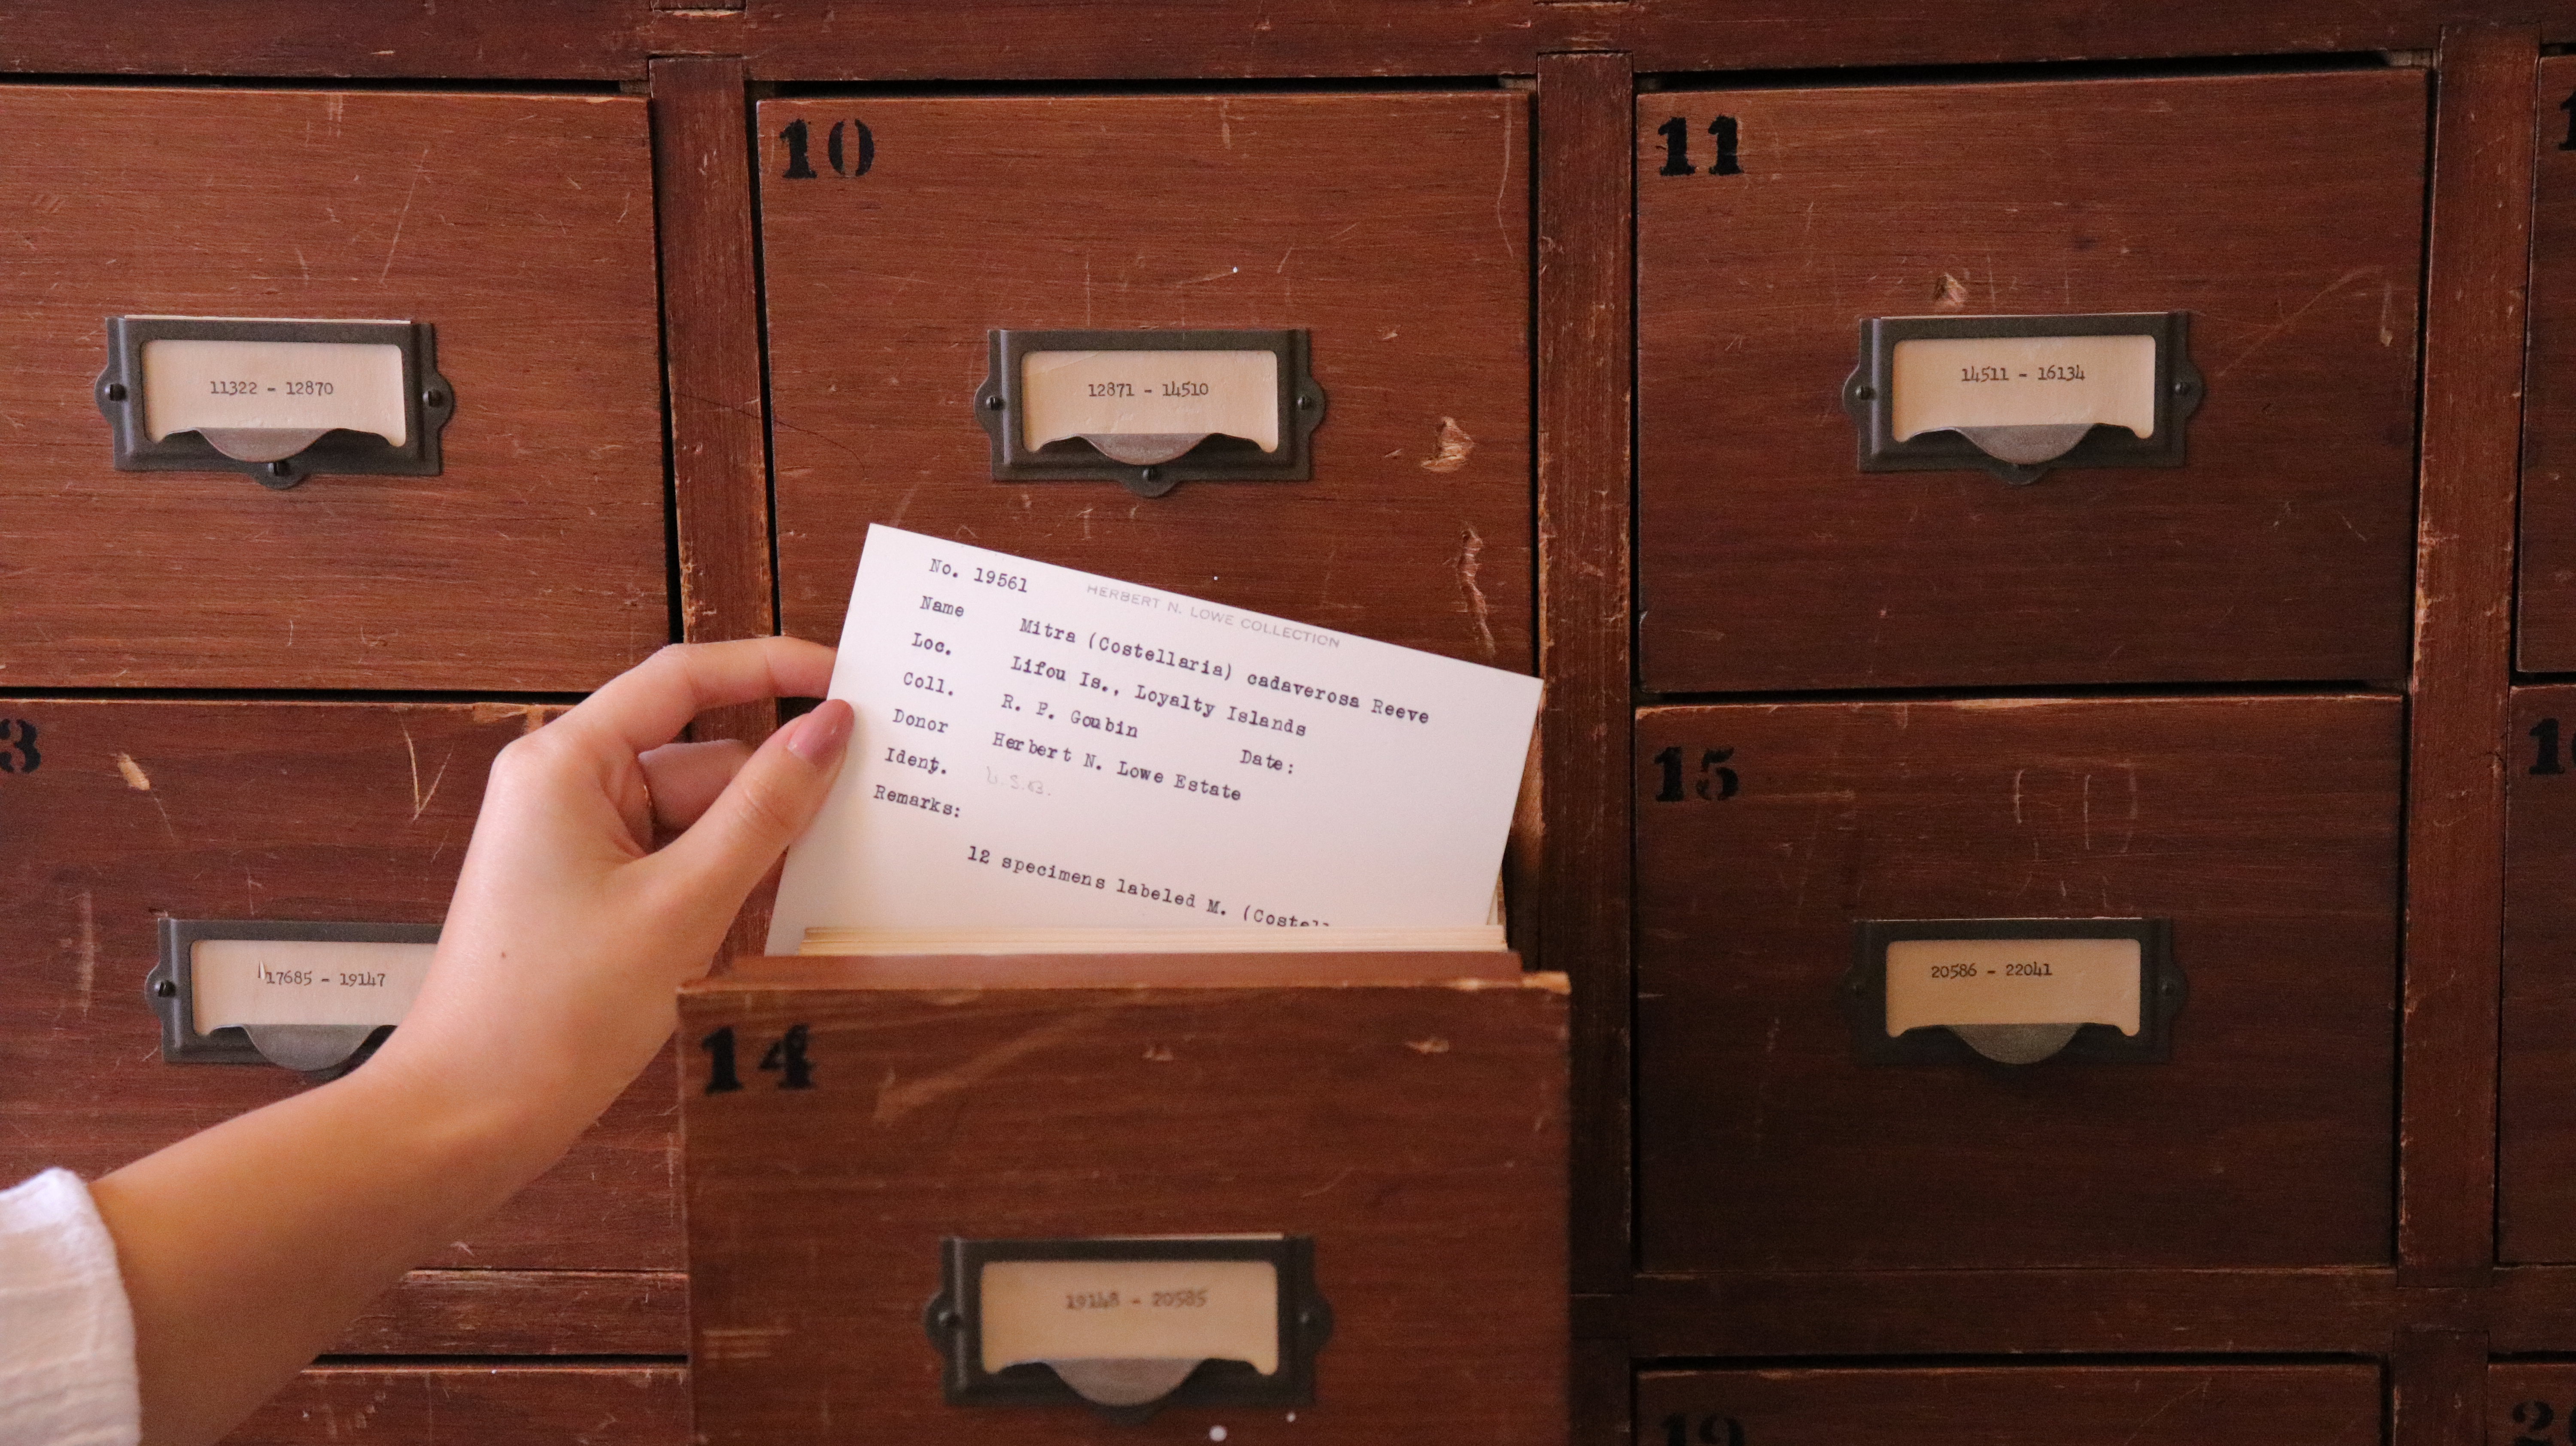 10
11
11322 - 12870
12871 - 14510
14511 - 16134
No. 19561
HERBERT N. LOWE COLLECTION
Name Mitra (Costellaria) cadaverosa Reeve
Loc. Lifou Is., Loyalty Islands
Coll. R. P. Goubin Date:
Donor Herbert N. Lowe Estate
Ident. U.S.B.
Remarks:
12 specimens labeled M. (Costell
3
15
17685 - 19147
20586 - 22041
14
19148 - 20585
19